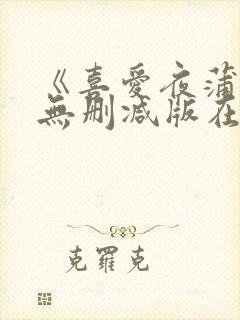 《喜愛夜蒲
無刪減版在
克羅克